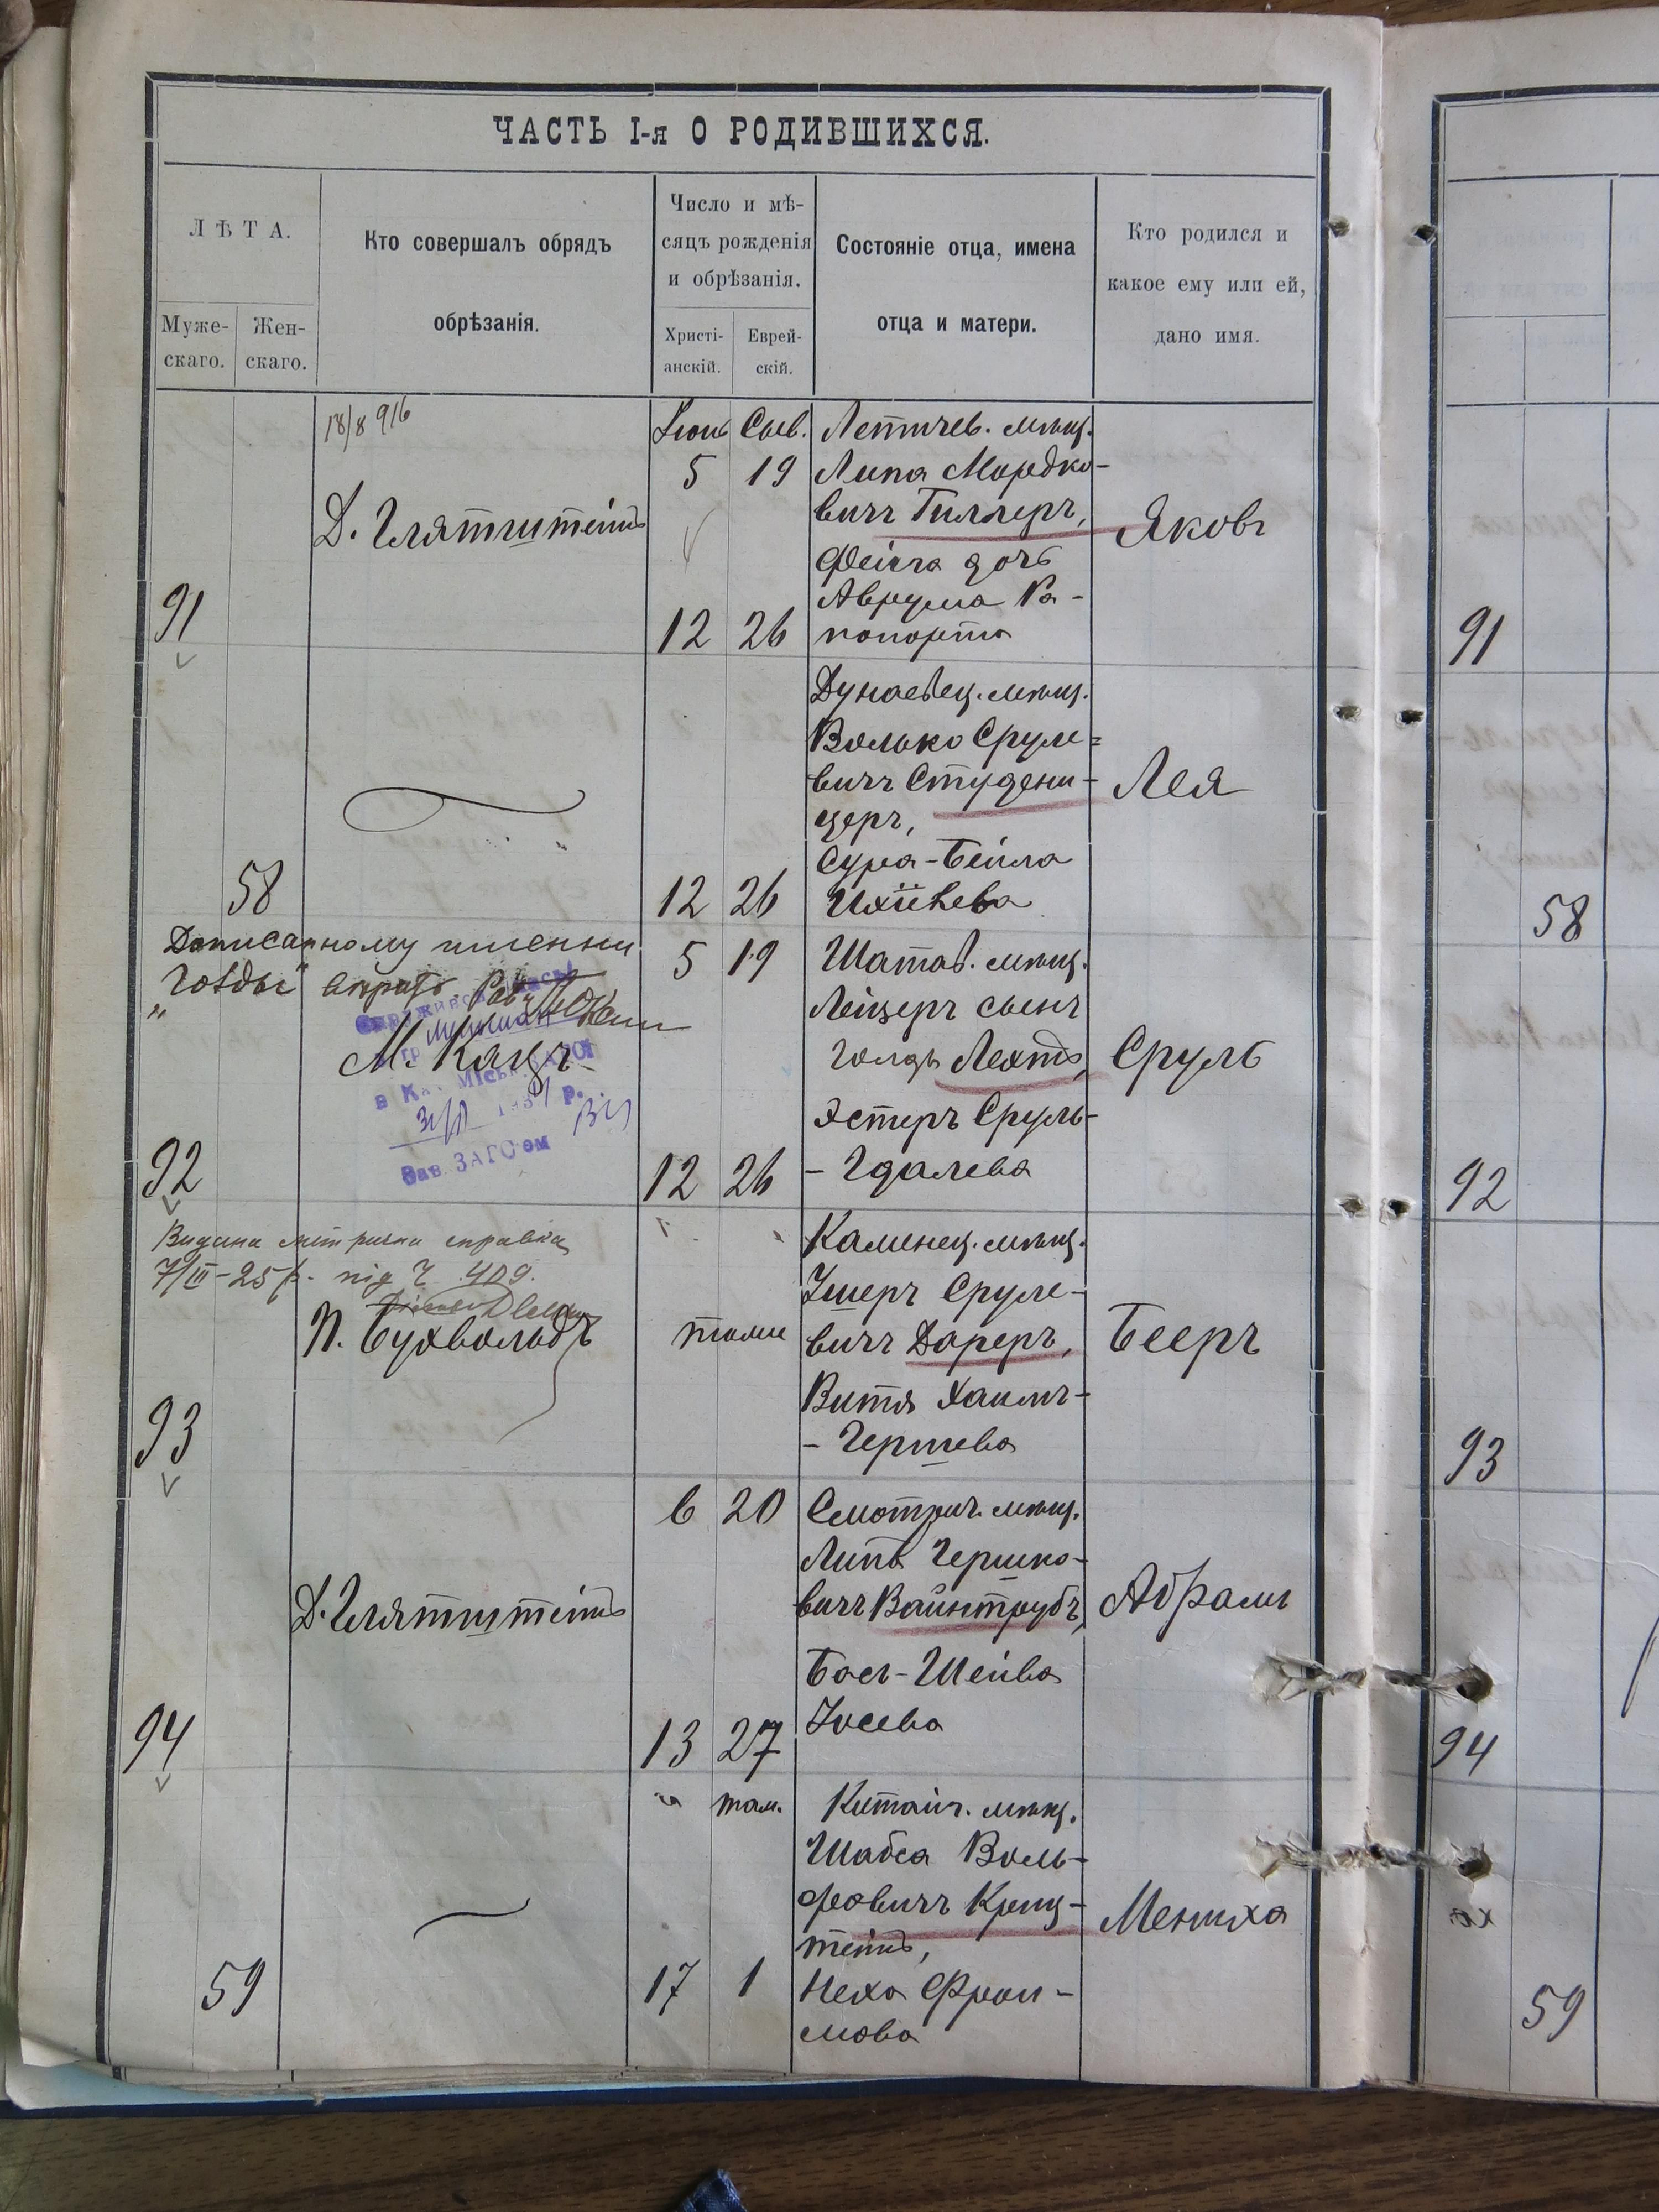 ЧАСТЬ I-я О РОДИВШИХСЯ.
ЛѢТА.
Муже-
скаго.
Жен-
скаго.
Кто совершалъ обрядъ
обрѣзанія.
Число и мѣ-
сяцъ рожденія
и обрѣзанія.
Христі-
анскій.
Еврей-
скій.
Состояніе отца, имена
отца и матери.
Кто родился и
какое ему или ей,
дано имя.
18/8 916
Іюнь Сыв.
5 19
Д. Глятштейнъ
91
12 26
Летичев. мѣщ.
Липа Мордко-
вичъ Гиллеръ,
Фейга дочь
Аврума Ра-
попорта
Яковъ
91
58
12 26
Дунаевец. мѣщ.
Волько Сруле=
вичъ Студени-
церъ,
Сура-Бейла
Ихіелева
Лея
58
Дописанному имени
М. Кацъ
в К. Міськ. ЗАГСІ
Зав. ЗАГСом
5 19
92
12 26
Шатав. мѣщ.
Лейзеръ сынъ
Голдъ Лехтъ,
Эстеръ Сруль-
- Гдалева
Сруль
92
Видана метрична справка
7/III-25 р. під Ч 409.
П. Бухвольдъ
93
тоже
Каменец. мѣщ.
Ушеръ Сруле-
вичъ Дареръ,
Витя Хаимъ-
- Гершева
Бееръ
93
6 20
Д. Глятштейнъ
94
13 27
Смотрич. мѣщ.
Липа Гершко-
вичъ Вайнтрубъ,
Бася-Шейва
Іосева
Абрамъ
94
там.
59
17 1
Китайг. мѣщ.
Шабса Воль-
фовичъ Криц-
тейнъ,
Неха Фрои-
мова
Мениха
59